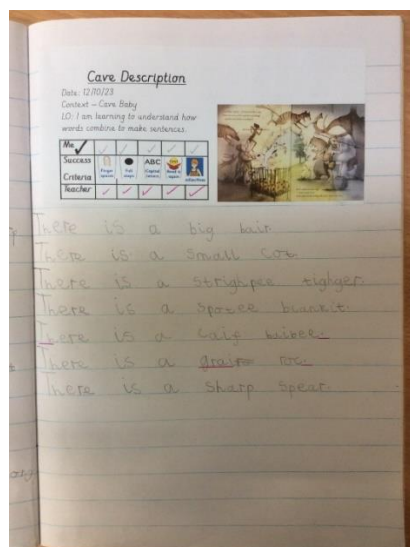 Cave Description
Date: 12/10/23
Context – Cave Baby
LO: I am learning to understand how
words combine to make sentences.
Me
Success
Criteria
Finger spaces
Full stops
ABC
Capital letters
Read it again
adjectives
Teacher
There is a big bair.
There is a small cot.
There is a strighpee tighger.
There is a spotee blankit.
There is a caif baibee.
There is a grair roc.
There is a sharp spear.